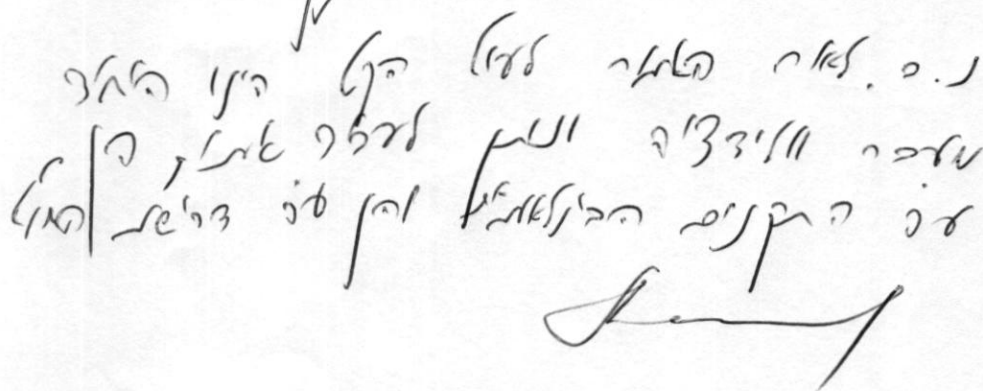 נ.ב. לאור האמור לעיל הקט הינו היחיד
מעבר ולידציה ונותן לעבוד איתו הן
ע״פ התקנים הבינלאומיים והן ע״פ דרישת